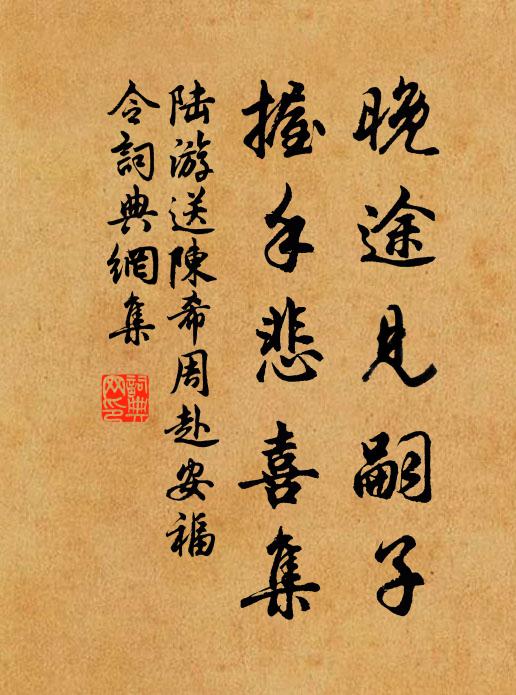 晚途見嗣子
握手悲喜集
陆游送陳希周赴安福
令詞典網集
詞典
网印